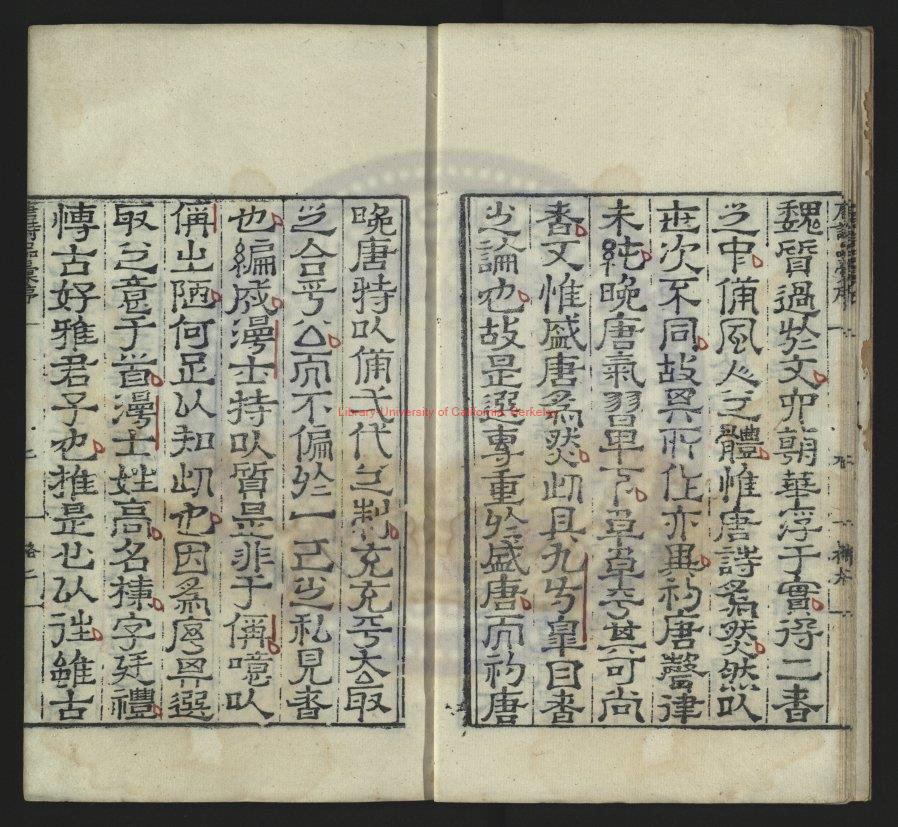 魏質過於文六朝華浮于實得二者
之中備風人之體惟唐詩為然然以
世次不同故其所作亦異初唐聲律
未純晚唐氣習卑下卓卓乎其可尚
者又惟盛唐為然此具九方皋目者
之論也故是選專重於盛唐而初唐
晚唐特以備弌代之制充充乎去取
之合乎公而不偏於一己之私見者
也編成漫士特以質是非于偁噫以
偁之陋何足以知此也因為序其選
取之意于首漫士姓高名棅字廷禮
博古好雅君子也推是心以往雖古
Library University of California Berkeley